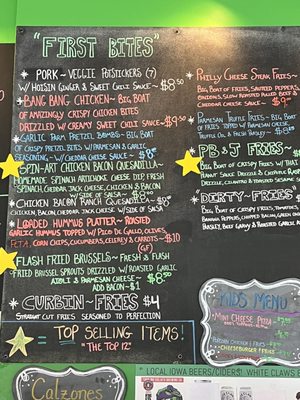 "FIRST BITES"
PORK~VEGGIE POTSTICKERS (7)
W/ HOISIN GINGER & SWEET CHILE SAUCE~ $8.50
BANG BANG CHICKEN~ BIG BOAT
OF AMAZINGLY CRISPY CHICKEN BITES
DRIZZLED W/ CREAMY SWEET CHILI SAUCE~$9.50
GARLIC PARM PRETZEL BOMBS~ BIG BOAT
OF CRISPY PRETZEL BITES W/ PARMESAN & GARLIC
SEASONING~ W/ CHEDDAR CHEESE SAUCE~ $8
SPIN-ART CHICKEN BACON QUESADILLA~
HOMEMADE SPINACH ARTICHOKE CHEESE DIP, FRESH
SPINACH, CHEDDAR JACK CHEESE, CHICKEN & BACON
W/ SIDE OF SALSA
CHICKEN BACON RANCH QUESADILLA~ $8
CHICKEN, BACON, CHEDDAR JACK CHEESE W/ SIDE OF SALSA
LOADED HUMMUS PLATTER~ ROASTED
GARLIC HUMMUS TOPPED W/ PICO DE GALLO, OLIVES,
FETA, CORN CHIPS, CUCUMBERS, CELERY & CARROTS~$10
(GF)
FLASH FRIED BRUSSELS~ FRESH & FLASH
FRIED BRUSSEL SPROUTS DRIZZLED W/ ROASTED GARLIC
AIOLI & PARMESAN CHEESE~ $8.50
ADD BACON~$1
CURBIN~FRIES $4
STRAIGHT CUT FRIES SEASONED TO PERFECTION
= TOP SELLING ITEMS!
"THE TOP 12"
PHILLY CHEESE STEAK FRIES~
BIG BOAT OF FRIES, SAUTEED PEPPERS,
ONIONS, SLOW ROASTED PULLED BEEF &
CHEDDAR CHEESE SAUCE~ $9
PARMESAN TRUFFLE FRIES~ BIG BOAT
OF FRIES TOPPED W/ PARMESAN CHEESE,
TRUFFLE OIL & FRESH PARSLEY~
PB & J FRIES~
BIG BOAT OF CRISPY FRIES W/ THAI
PEANUT SAUCE DRIZZLE &
DRIZZLE, CILANTRO & TOASTED SESAME
DIRTY~FRIES
BIG BOAT OF CRISPY FRIES, TOMATOES,
BANANA PEPPERS, CHOPPED BACON, GREEN ONION,
PARSLEY, BEEF GRAVY & ROASTED GARLIC
KIDS MENU
MINI CHEESE PIZZA
POPCORN CHICKEN & FRIES
CHEESEBURGER & FRIES
CALZONES
* LOCAL IOWA BEERS/CIDERS * WHITE CLAWS